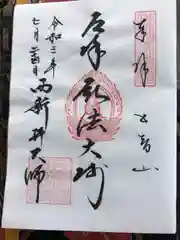 奉拝
五智山
厄除弘法大師
令和三年
七月二十四日
西新井大師